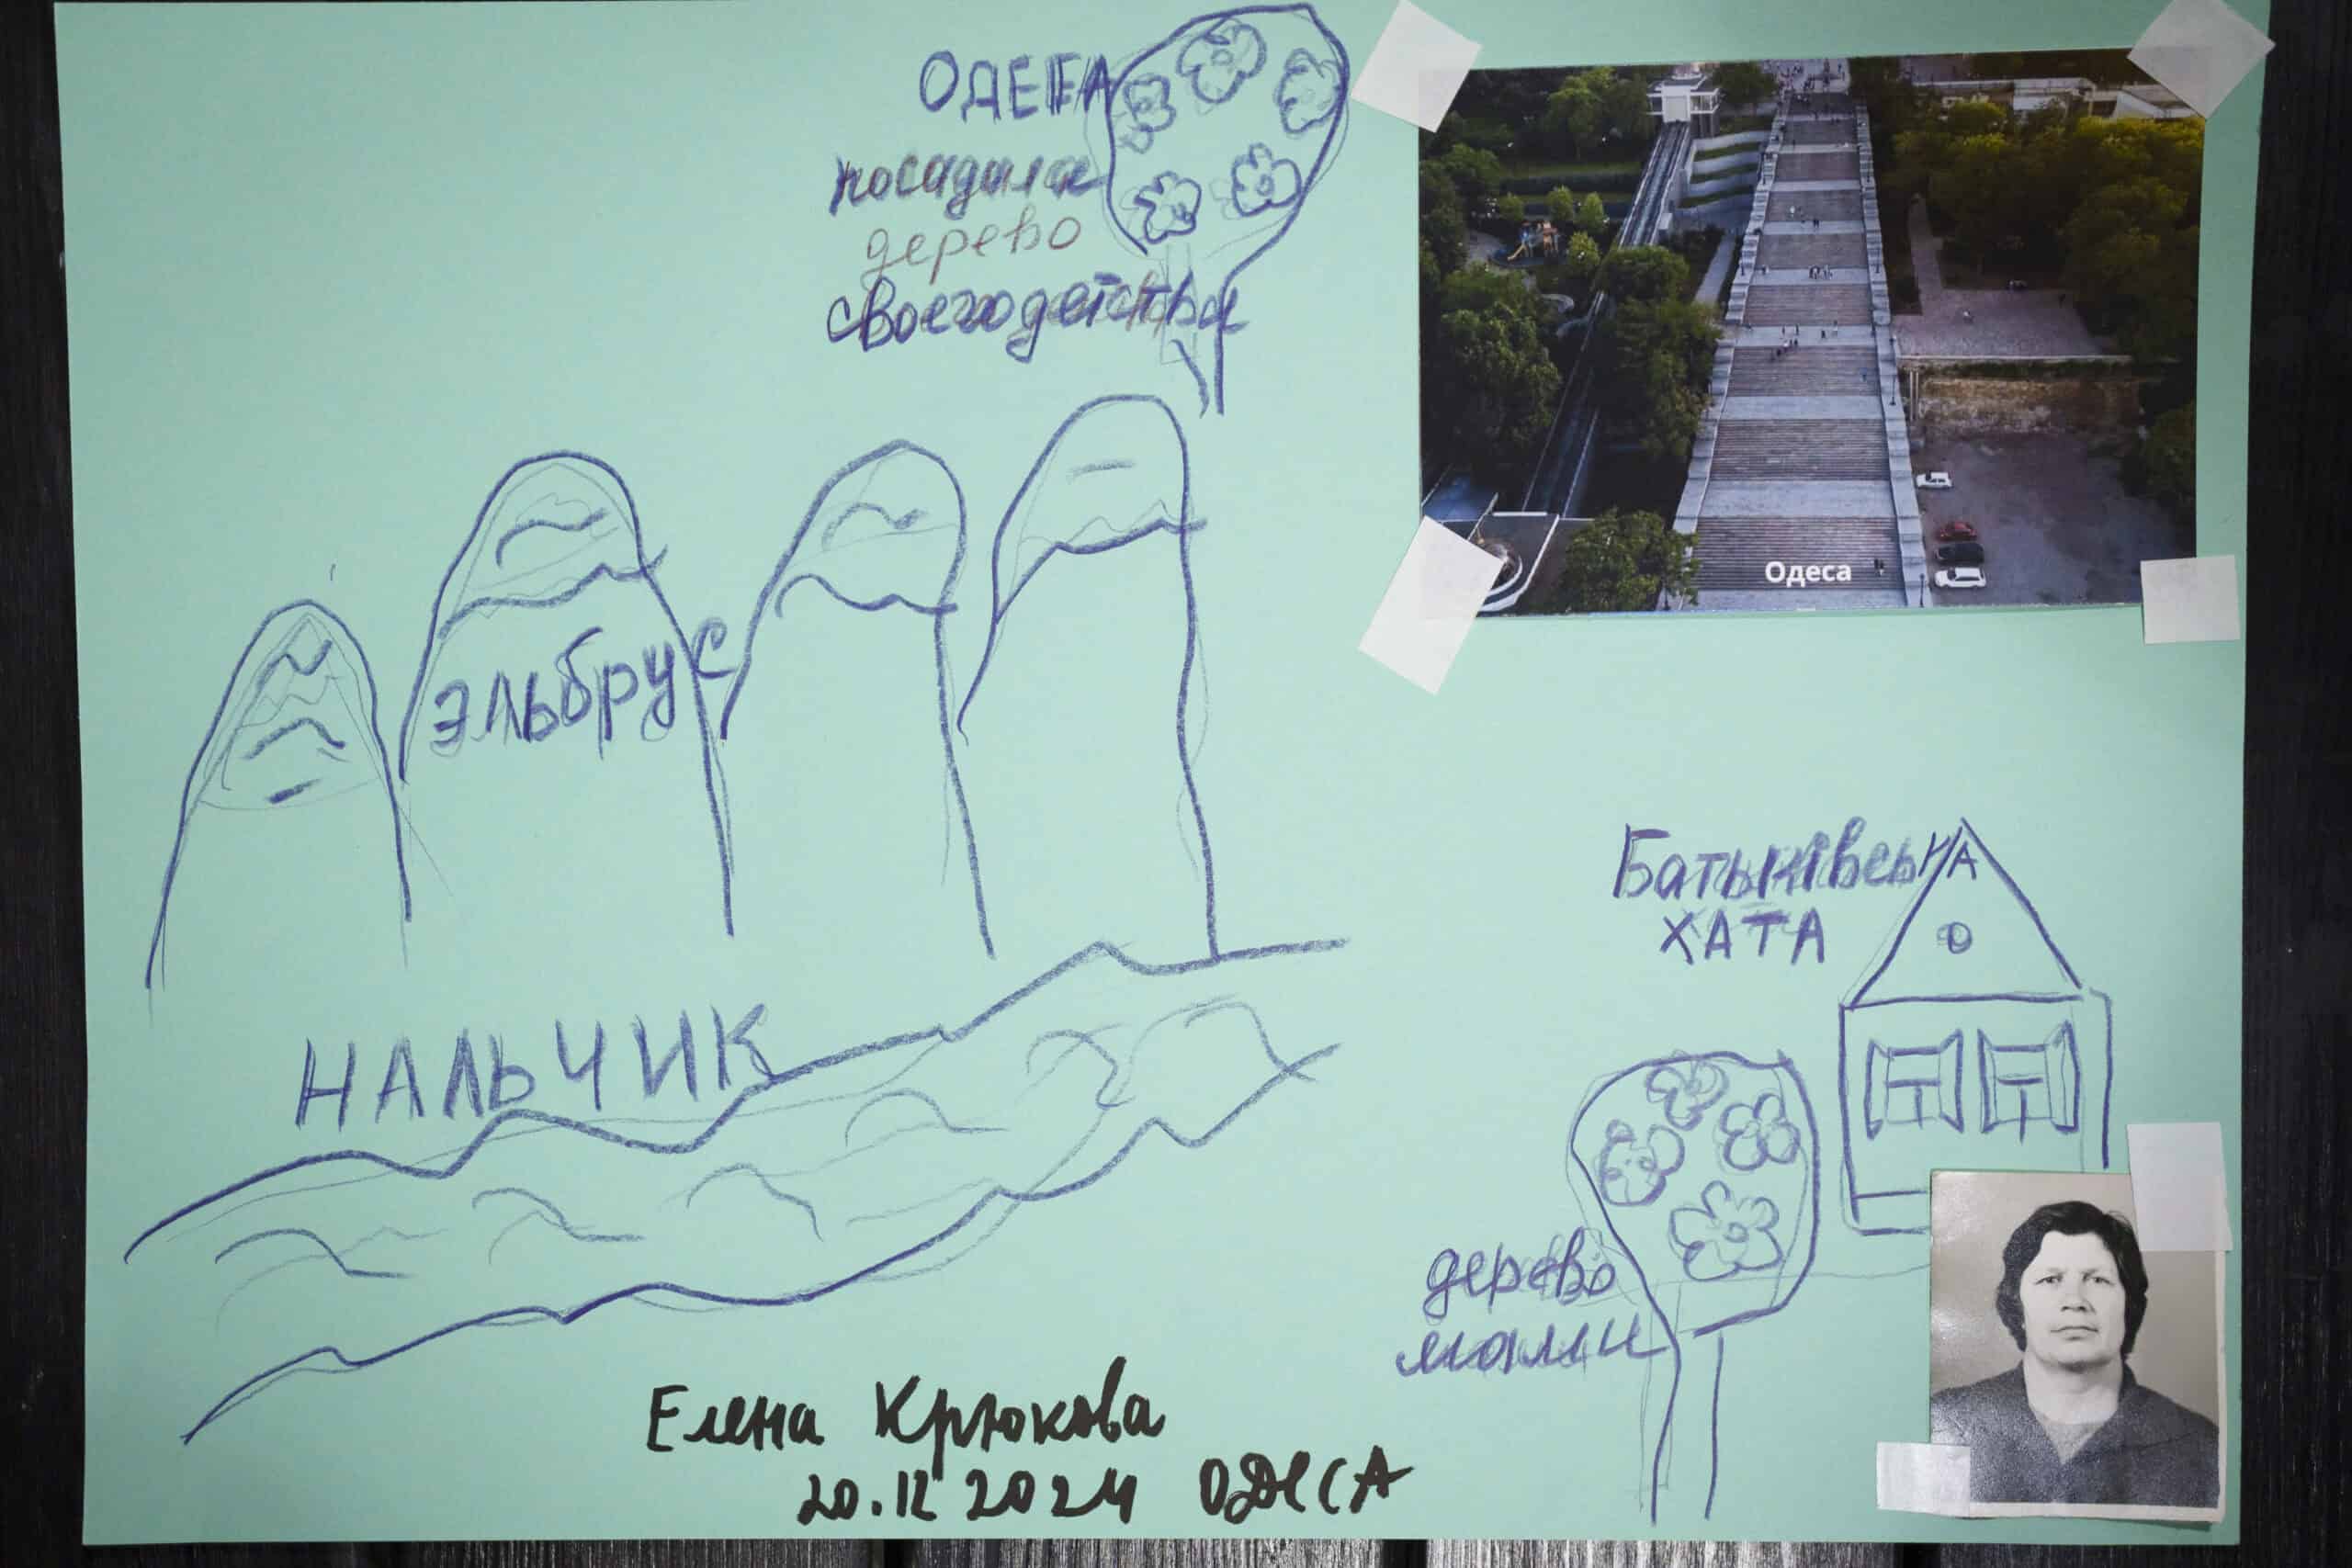 ОДЕСА
посадила
дерево
своего детства
Одеса
ЭЛЬбрус
Батьківсь КА
ХАТА
НАЛЬЧИК
дерево
мами
Елена Крюкова
20.12 2024 ОДЕССА